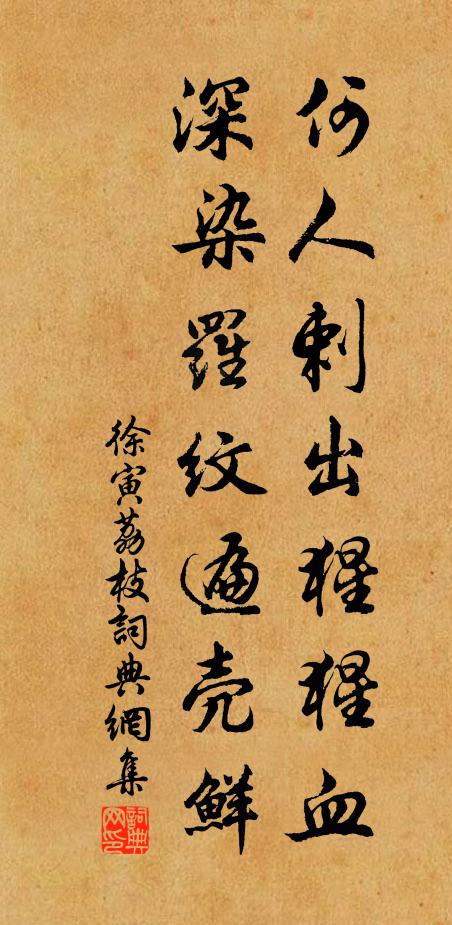 何人刺出猩猩血
深染羅紋遍壳鮮
徐寅荔枝詞典網集
詞典网印